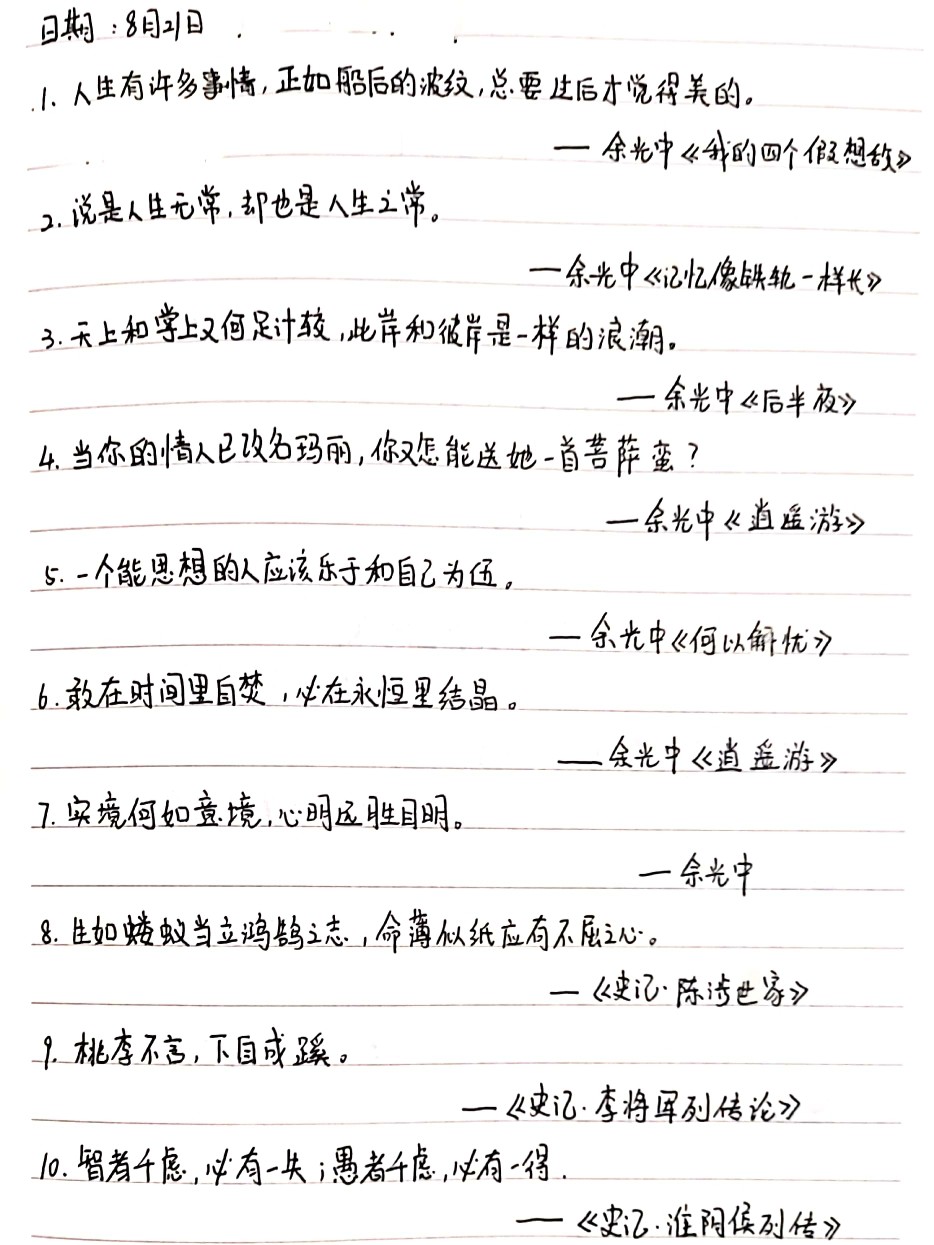 日期：8月21日
1. 人生有许多事情，正如船后的波纹，总要过后才觉得美的。
— 余光中《我的四个假想敌》
2. 说是人生无常，却也是人生之常。
— 余光中《记忆像铁轨一样长》
3. 天上和掌上又何足计较，此岸和彼岸是一样的浪潮。
— 余光中《后半夜》
4. 当你的情人已改名玛丽，你又怎能送她一首菩萨蛮？
— 余光中《逍遥游》
5. 一个能思想的人应该乐于和自己为伍。
— 余光中《何以解忧》
6. 敢在时间里自焚，必在永恒里结晶。
— 余光中《逍遥游》
7. 实境何如意境，心明远胜目明。
— 余光中
8. 生如蝼蚁当立鸿鹄之志，命薄似纸应有不屈之心。
— 《史记·陈涉世家》
9. 桃李不言，下自成蹊。
— 《史记·李将军列传论》
10. 智者千虑，必有一失；愚者千虑，必有一得.
— 《史记·淮阴侯列传》